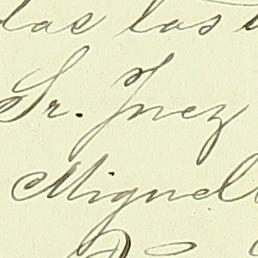 das las
Sr. Juez
Miguel